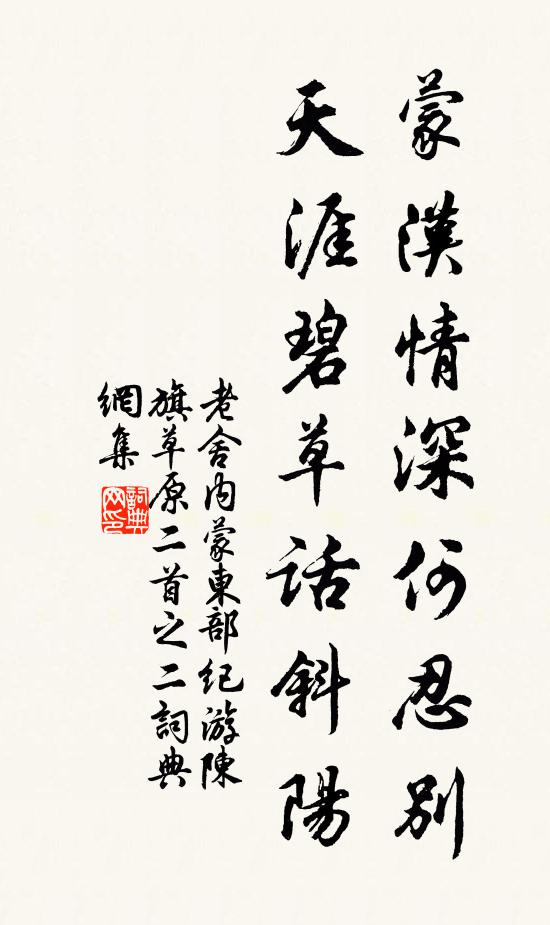 蒙漢情深何忍別
天涯碧草話斜陽
老舍內蒙東部紀游陳
旗草原二首之二詞典
網集
詞典
网印